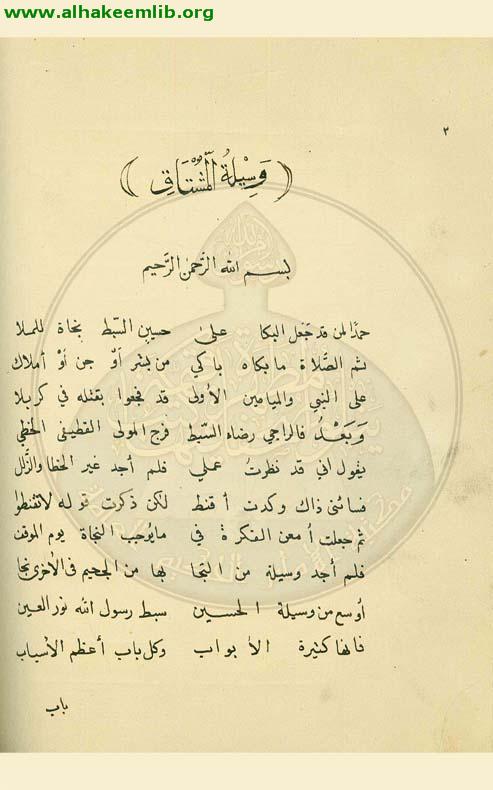 www.alhakeemlib.org
٣
(وَسِيلَةُ الْمُشْتَاقِ)
بسم الله الرَّحمٰن الرَّحيم
حمدًا لمن قد جَعل البكا على حسين السّبط نجاة للملا
ثم الصَّلاة ما بكاه باكي من بشر أوْ جن أوْ أملاك
على النبي والميامين الأولى قد فجعوا بقتله في كربلا
وَبَعْدُ فالراجي رضاه السّبط فرج المولى القطيفي الخطي
يقول اني قد نظرت عملي فلم أجد غير الخطا والزّلل
فسائني ذاك وكدت أقنط لكن ذكرت قوله لا تقنطوا
ثم جعلت أمعن الفكرة في ما يوجب النجاة يوم الموقف
فلم أجد وسيلة من التجا بها من الجحيم في الأخرى نجا
أوسع من وسيلة الحسين سبط رسول الله نور العين
فانها كثيرة الأبواب وكل باب أعظم الأسباب
باب